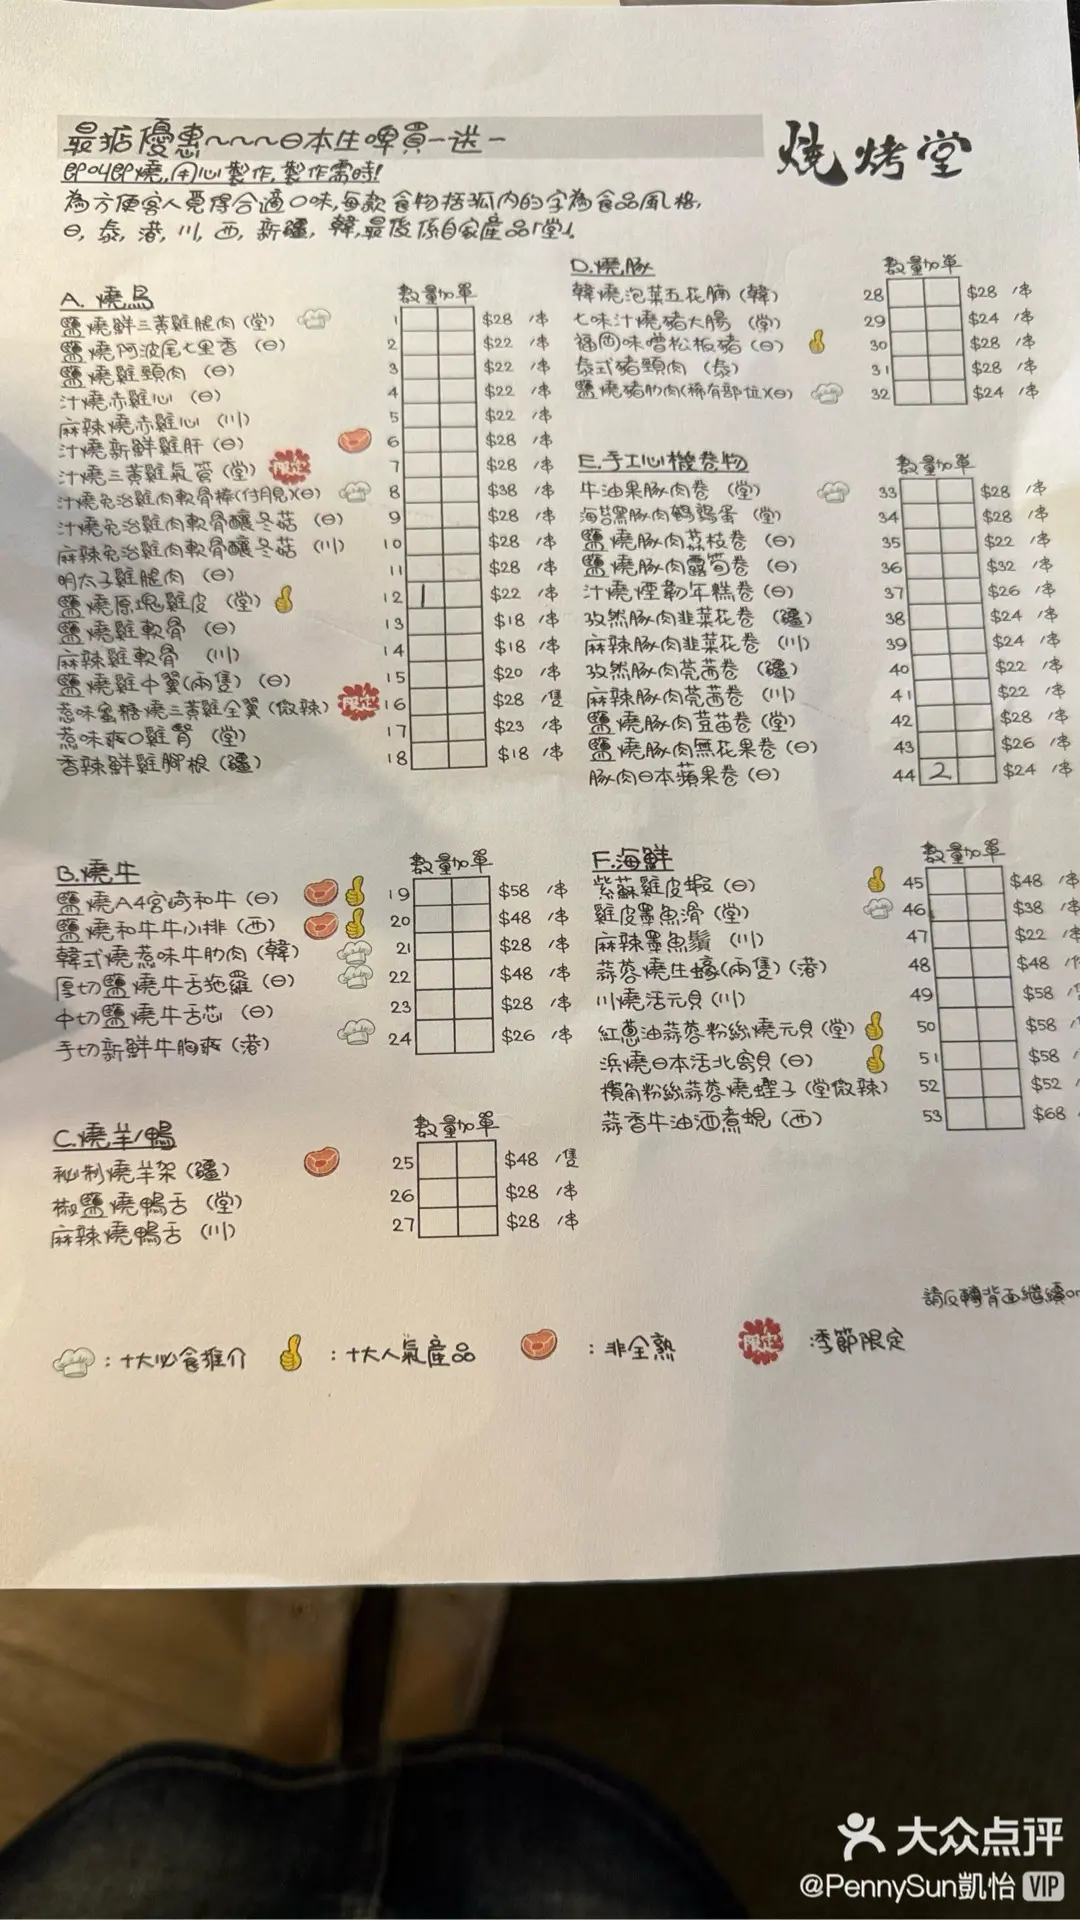 最抵優惠~~~日本生啤買一送一
燒烤堂
即叫即燒,用心製作,製作需時!
為方便客人覓得合適口味,每款食物括弧內的字為食品風格,
日,泰,港,川,西,新疆,韓,最後係自家產品「堂」.
A. 燒鳥 數量加單
鹽燒鮮三黃雞腿肉(堂) 1 $28 /串
鹽燒阿波尾七里香 (日) 2 $22 /串
鹽燒雞頸肉 (日) 3 $22 /串
汁燒赤雞心 (日) 4 $22 /串
麻辣燒赤雞心 (川) 5 $22 /串
汁燒新鮮雞肝 (日) 6 $28 /串
汁燒三黃雞氣管 (堂) 限定 7 $28 /串
汁燒免治雞肉軟骨棒(付月見)(日) 8 $38 /串
汁燒免治雞肉軟骨釀冬菇 (日) 9 $28 /串
麻辣免治雞肉軟骨釀冬菇 (川) 10 $28 /串
明太子雞腿肉 (日) 11 $28 /串
鹽燒原塊雞皮 (堂) 12 1 $22 /串
鹽燒雞軟骨 (日) 13 $18 /串
麻辣雞軟骨 (川) 14 $18 /串
鹽燒雞中翼(兩隻) (日) 15 $20 /串
惹味蜜糖燒三黃雞全翼 (微辣) 限定 16 $28 /隻
惹味爽口雞腎 (堂) 17 $23 /串
香辣鮮雞腳根 (疆) 18 $18 /串
B.燒牛 數量加單
鹽燒A4宮崎和牛 (日) 19 $58 /串
鹽燒和牛牛小排 (西) 20 $48 /串
韓式燒惹味牛肋肉 (韓) 21 $28 /串
厚切鹽燒牛舌拖羅 (日) 22 $48 /串
中切鹽燒牛舌芯 (日) 23 $28 /串
手切新鮮牛胸爽 (港) 24 $26 /串
C.燒羊/鴨 數量加單
秘制燒羊架 (疆) 25 $48 /隻
椒鹽燒鴨舌 (堂) 26 $28 /串
麻辣燒鴨舌 (川) 27 $28 /串
D.燒豚 數量加單
韓燒泡菜五花腩 (韓) 28 $28 /串
七味汁燒豬大腸 (堂) 29 $24 /串
福岡味噌松板豬 (日) 30 $28 /串
泰式豬頸肉 (泰) 31 $28 /串
鹽燒豬肋肉(稀有部位)(日) 32 $24 /串
E.手工心機卷物 數量加單
牛油果豚肉卷 (堂) 33 $28 /串
海苔黑豚肉鵪鶉蛋 (堂) 34 $28 /串
鹽燒豚肉荔枝卷 (日) 35 $22 /串
鹽燒豚肉露筍卷 (日) 36 $32 /串
汁燒煙韌年糕卷 (日) 37 $26 /串
孜然豚肉韭菜花卷 (疆) 38 $24 /串
麻辣豚肉韭菜花卷 (川) 39 $24 /串
孜然豚肉莞茜卷 (疆) 40 $22 /串
麻辣豚肉莞茜卷 (川) 41 $22 /串
鹽燒豚肉荳苗卷 (堂) 42 $28 /串
鹽燒豚肉無花果卷 (日) 43 $26 /串
豚肉日本蘋果卷 (日) 44 2 $24 /串
F.海鮮 數量加單
紫蘇雞皮蝦 (日) 45 $48 /串
雞皮墨魚滑 (堂) 46 $38 /串
麻辣墨魚鬚 (川) 47 $22 /串
蒜蓉燒生蠔(兩隻) (港) 48 $48
川燒活元貝 (川) 49 $58
紅蔥油蒜蓉粉絲燒元貝 (堂) 50 $58
浜燒日本活北寄貝 (日) 51 $58
欖角粉絲蒜蓉燒蟶子 (堂微辣) 52 $52
蒜香牛油酒煮蜆 (西) 53 $68
請反轉背面繼續or
:十大必食推介
:十大人氣產品
:非全熟
限定 :季節限定
大众点评
@PennySun凱怡 VIP